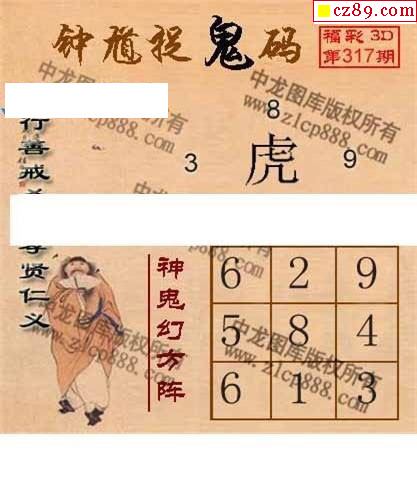 cz89.com
钟馗捉鬼码
福彩 3D
第317期
中龙图库版权所有
www.zlcp888.com
行善戒
尊贤仁义
8
3 虎 9
神鬼幻方阵
6 2 9
5 8 4
6 1 3
中龙图库版权所有
www.zlcp888.com